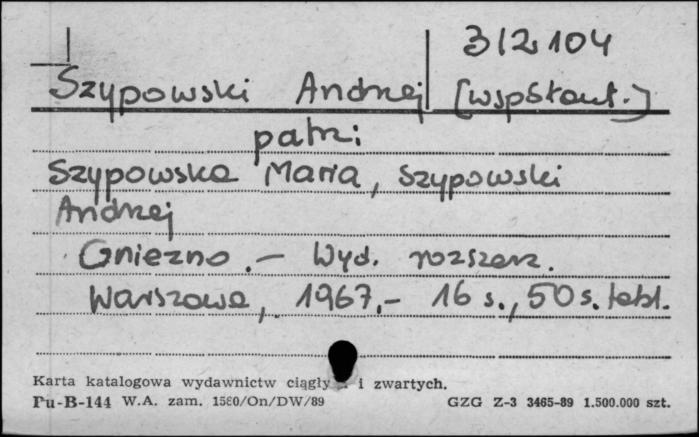 312104
Szypowski Andrzej [współaut.]
patrz:
Szypowska Maria, Szypowski
Andrzej
Gniezno. – Wyd. rozszerz.
Warszawa, 1967. – 16 s., 50 s. tabl.
Karta katalogowa wydawnictw ciągły i zwartych.
Pu-B-144 W.A. zam. 1580/On/DW/89 GZG Z-3 3465-89 1.500.000 szt.